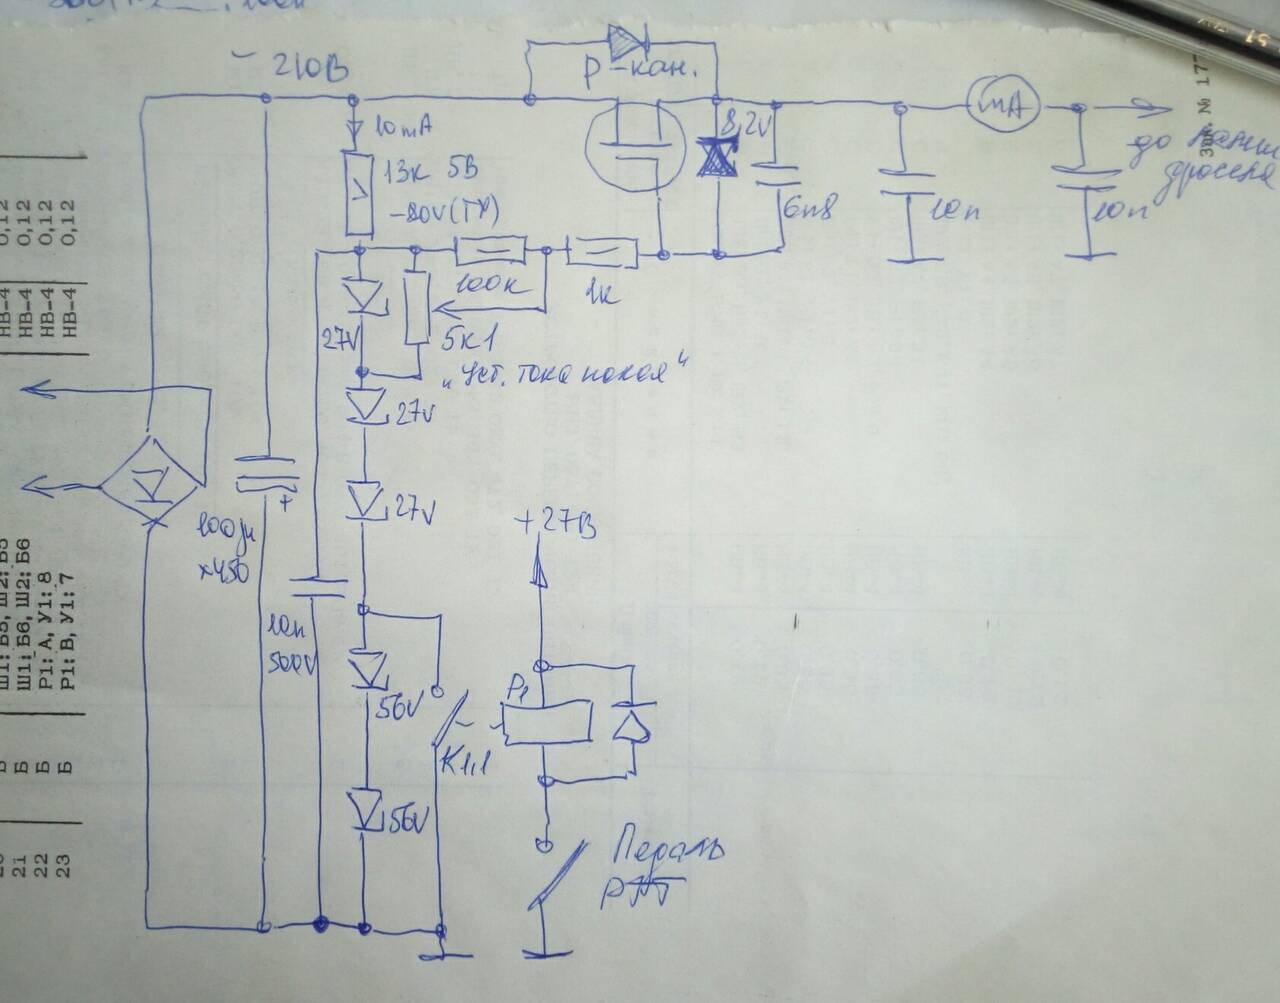 ~ 210В
р-кан.
10mA
8,2v
mA
13к 5В
-80v(TX)
6п8
10п
10п
до
дросселя
100к
1к
27v
5к1
"Уст. тока покоя"
27v
27v
+27В
+
х450
10п
500V
56v
P1
К1.1
56v
Педаль
РТТ
Зак. № 17-
51
0,12
0,12
0,12
0,12
НВ-4
НВ-4
НВ-4
НВ-4
Ш1: Б5, Ш2: Б5
Ш1: Б6, Ш2: Б6
Р1: А, У1: 8
Р1: В, У1: 7
Б
Б
Б
21
22
23